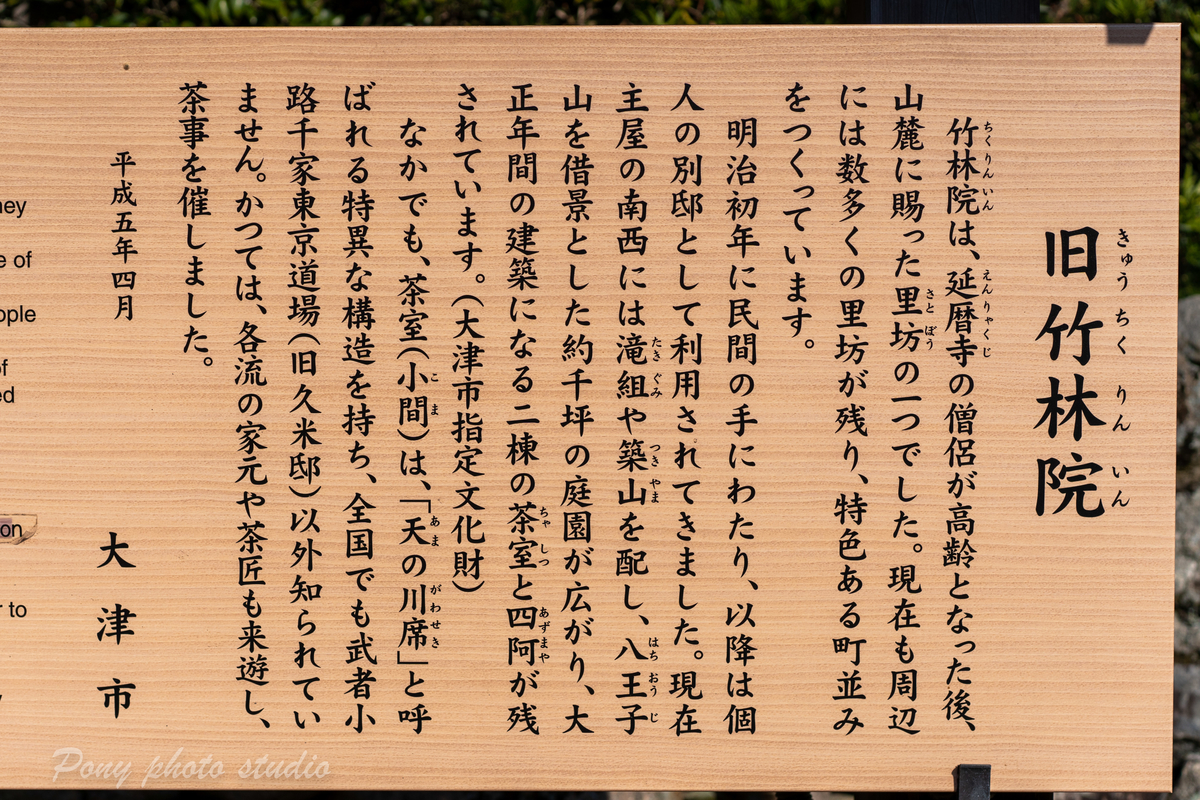 旧竹林院
きゅう ちく りん いん
竹林院は、延暦寺の僧侶が高齢となった後、
ちくりんいん えんりゃくじ
山麓に賜った里坊の一つでした。現在も周辺
さとぼう
には数多くの里坊が残り、特色ある町並み
をつくっています。
明治初年に民間の手にわたり、以降は個
人の別邸として利用されてきました。現在
主屋の南西には滝組や築山を配し、八王子
たきぐみ つきやま はちおうじ
山を借景とした約千坪の庭園が広がり、大
正年間の建築になる二棟の茶室と四阿が残
ちゃしつ あずまや
されています。(大津市指定文化財)
なかでも、茶室(小間)は、「天の川席」と呼
こま あま がわせき
ばれる特異な構造を持ち、全国でも武者小
路千家東京道場(旧久米邸)以外知られてい
ません。かつては、各流の家元や茶匠も来遊し、
茶事を催しました。
平成五年四月
大津市
ney
e of
ople
of
ed
on
r to
Pony photo studio